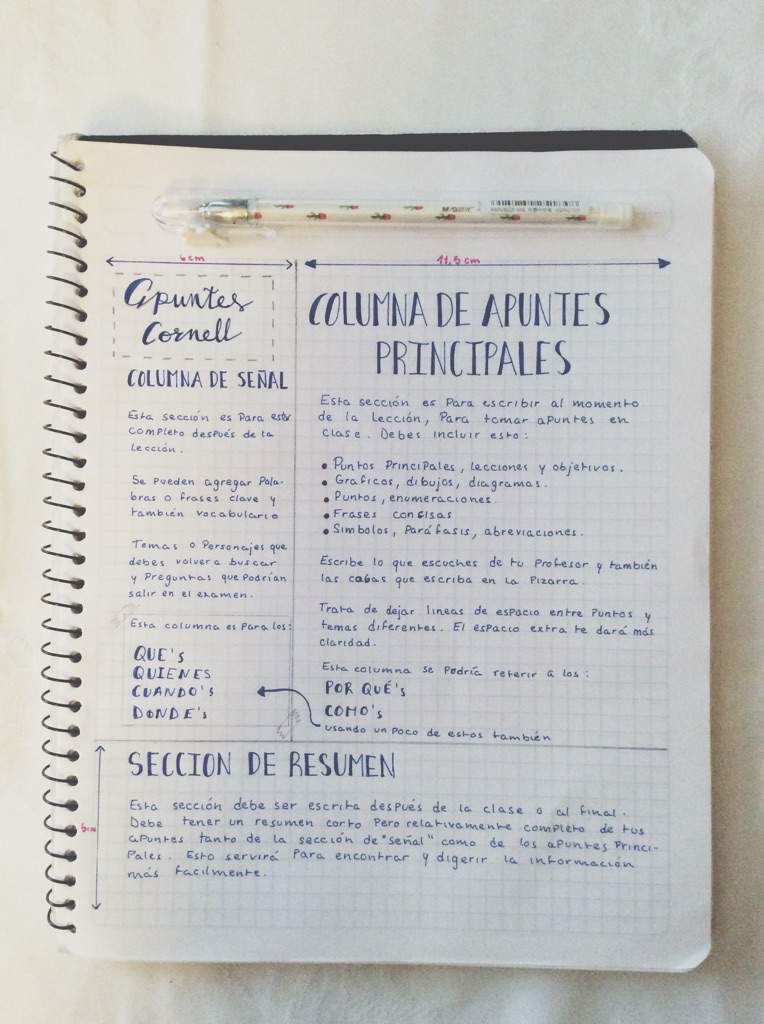 6cm
11,5cm
Apuntes
Cornell
COLUMNA DE SEÑAL
Esta sección es para estar
completo después de la
lección.
Se pueden agregar pala-
bras o frases clave y
también vocabulario
Temas o personajes que
debes volver a buscar
y preguntas que podrían
salir en el examen.
Esta columna es para los:
QUE's
QUIENES
CUANDO's
DONDE's
COLUMNA DE APUNTES
PRINCIPALES
Esta sección es para escribir al momento
de la lección, para tomar apuntes en
clase. Debes incluir esto:
• Puntos principales, lecciones y objetivos.
• Graficos, dibujos, diagramas.
• Puntos, enumeraciones.
• Frases concisas
• Simbolos, paráfasis, abreviaciones.
Escribe lo que escuches de tu profesor y también
las que escriba en la pizarra.
Trata de dejar lineas de espacio entre puntos y
temas diferentes. El espacio extra te dará más
claridad.
Esta columna se podría referir a los:
POR QUÉ's
COMO's
usando un poco de estos también
6cm
SECCION DE RESUMEN
Esta sección debe ser escrita después de la clase o al final.
Debe tener un resumen corto pero relativamente completo de tus
apuntes tanto de la sección de "señal" como de los apuntes princi-
pales. Esto servirá para encontrar y digerir la información
más facilmente.